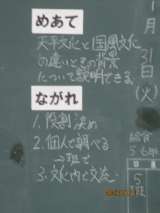 めあて
天平文化と国風文化
の違いとその背景
について説明できる。
ながれ
1.役割決め
2.個人で調べる
3.文化内で交流
1月
31日
(火)
給食
5